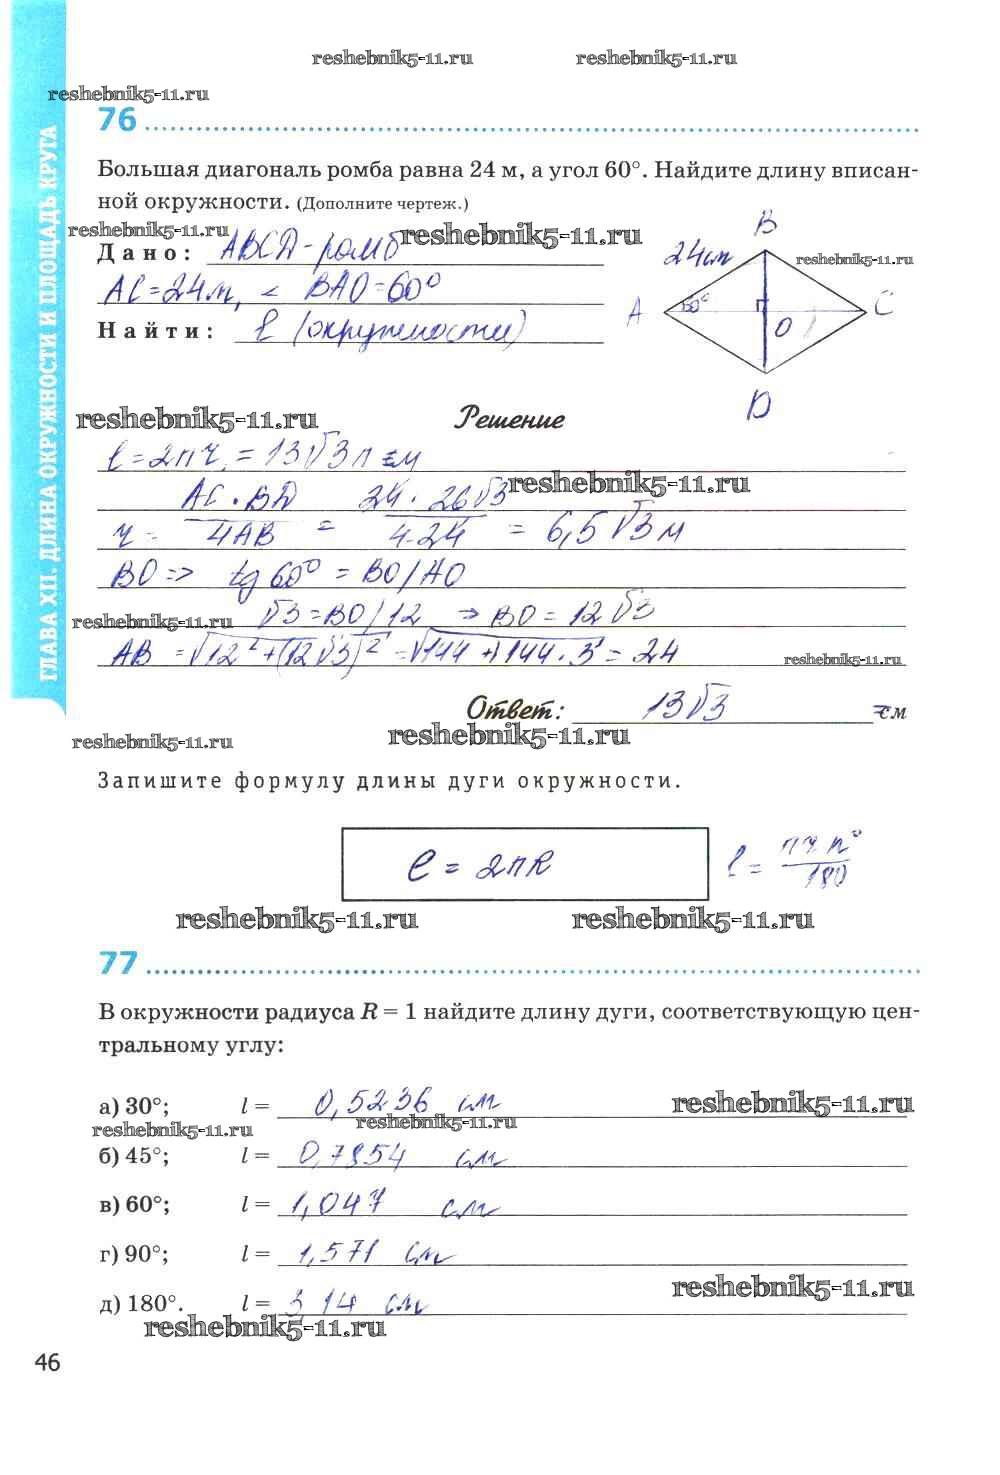 reshebnik5-11.ru reshebnik5-11.ru
reshebnik5-11.ru
ГЛАВА XII. ДЛИНА ОКРУЖНОСТИ И ПЛОЩАДЬ КРУГА
76
Большая диагональ ромба равна 24 м, а угол 60°. Найдите длину вписан-
ной окружности. (Дополните чертеж.)
reshebnik5-11.ru reshebnik5-11.ru
Дано: ABCD - ромб
AC = 24 м, < BAO = 60°
Найти: l (окружности)
B
24 см
reshebnik5-11.ru
A 60° C
O
D
reshebnik5-11.ru Решение
l = 2πr = 13√3π см
reshebnik5-11.ru
r = AC · BD / 4AB = 24 · 26√3 / 4·24 = 6,5√3 м
BO => tg 60° = BO/AO
reshebnik5-11.ru √3 = BO/12 → BO = 12√3
AB = √12² + (12√3)² = √144 + 144·3 = 24
reshebnik5-11.ru
Ответ: 13√3 см
reshebnik5-11.ru reshebnik5-11.ru
Запишите формулу длины дуги окружности.
l = 2πR l = πr n° / 180
reshebnik5-11.ru reshebnik5-11.ru
77
В окружности радиуса R = 1 найдите длину дуги, соответствующую цен-
тральному углу:
а) 30°; l = 0,5236 см
reshebnik5-11.ru
reshebnik5-11.ru reshebnik5-11.ru
б) 45°; l = 0,7854 см
в) 60°; l = 1,047 см
г) 90°; l = 1,571 см
reshebnik5-11.ru
д) 180°. l = 3 14 см
reshebnik5-11.ru
46